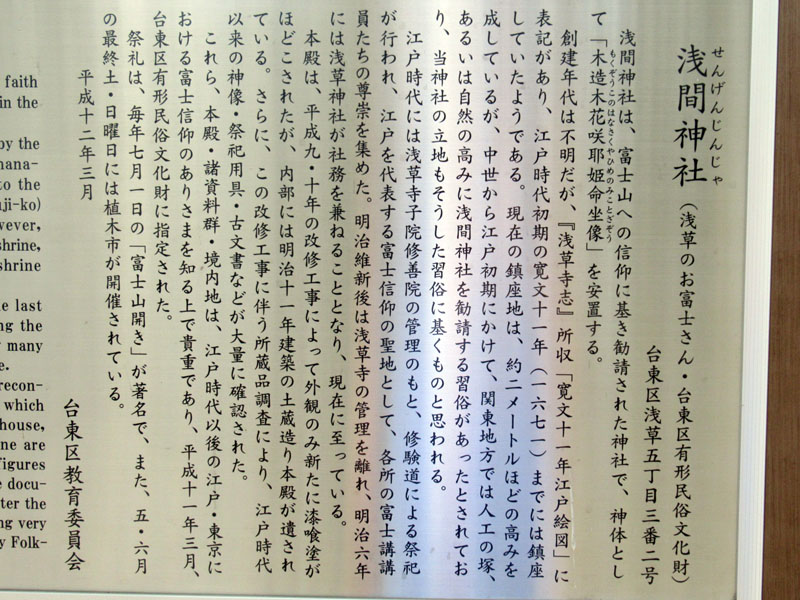 せんげんじんじゃ
浅間神社（浅草のお富士さん・台東区有形民俗文化財）
台東区浅草五丁目三番二号
浅間神社は、富士山への信仰に基き勧請された神社で、神体とし
もくぞうこのはなさくやひめのみことざぞう
て「木造木花咲耶姫命坐像」を安置する。
創建年代は不明だが、『浅草寺志』所収「寛文十一年江戸絵図」に
表記があり、江戸時代初期の寛文十一年（一六七一）までには鎮座
していたようである。現在の鎮座地は、約二メートルほどの高みを
成しているが、中世から江戸初期にかけて、関東地方では人工の塚、
あるいは自然の高みに浅間神社を勧請する習俗があったとされてお
り、当神社の立地もそうした習俗に基くものと思われる。
江戸時代には浅草寺子院修善院の管理のもと、修験道による祭祀
が行われ、江戸を代表する富士信仰の聖地として、各所の富士講講
員たちの尊崇を集めた。明治維新後は浅草寺の管理を離れ、明治六年
には浅草神社が社務を兼ねることとなり、現在に至っている。
本殿は、平成九・十年の改修工事によって外観のみ新たに漆喰塗が
ほどこされたが、内部には明治十一年建築の土蔵造り本殿が遺され
ている。さらに、この改修工事に伴う所蔵品調査により、江戸時代
以来の神像・祭祀用具・古文書などが大量に確認された。
これら、本殿・諸資料群・境内地は、江戸時代以後の江戸・東京に
おける富士信仰のありさまを知る上で貴重であり、平成十一年三月、
台東区有形民俗文化財に指定された。
祭礼は、毎年七月一日の「富士山開き」が著名で、また、五・六月
の最終土・日曜日には植木市が開催されている。
平成十二年三月
台東区教育委員会
faith
in the
by the
mana-
to the
uji-ko)
wever,
shrine,
shrine
e last
ng the
many
e.
recon-
which
house,
ne are
figures
e docu-
ter the
ng very
y Folk-